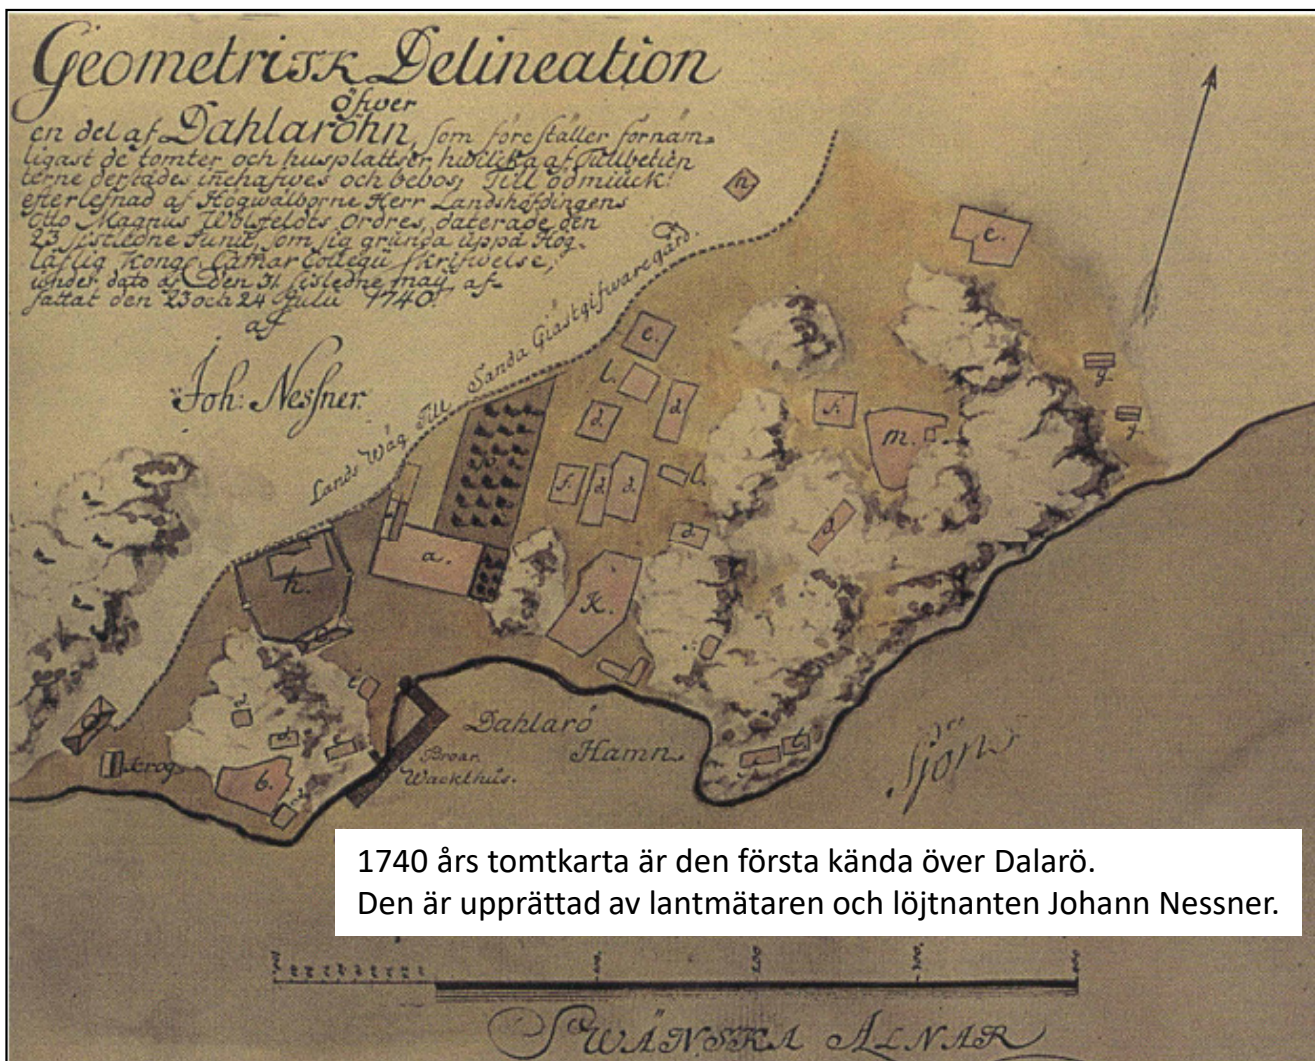 Geometrisk Delineation
öfwer
en del af Dahlaröhn, som föreställer förnäm-
ligast de tomter och husplattser, hwilcka af Tullbetien
terne derstädes innehafwes och bebos; Till ödmiuck
efterlefnad af Högwälborne Herr Landshöfdingens
Otto Magnus Wolfeldts Ordres, daterade den
23 sistledne Junii, som sig grunda uppå Hög-
läflig Kongl Camar Collegii Skrifwelse,
under dato af den 31 sisledne maij af-
fattat den 23 och 24 Julii 1740
af
Joh: Nessner.
Lands Wäg Till Sanda Giästgifwaregård.
n.
e.
c.
l.
d.
d.
f.
m.
g.
g.
f.
d.
d.
l.
d.
a.
h.
K.
i.
d.
d.
b.
t.
Krog
Dahlarö
Hamn.
Broar
Wackthus.
Sjön
1740 års tomtkarta är den första kända över Dalarö.
Den är upprättad av lantmätaren och löjtnanten Johann Nessner.
100.
200
300.
400
SWÄNSKA ALNAR